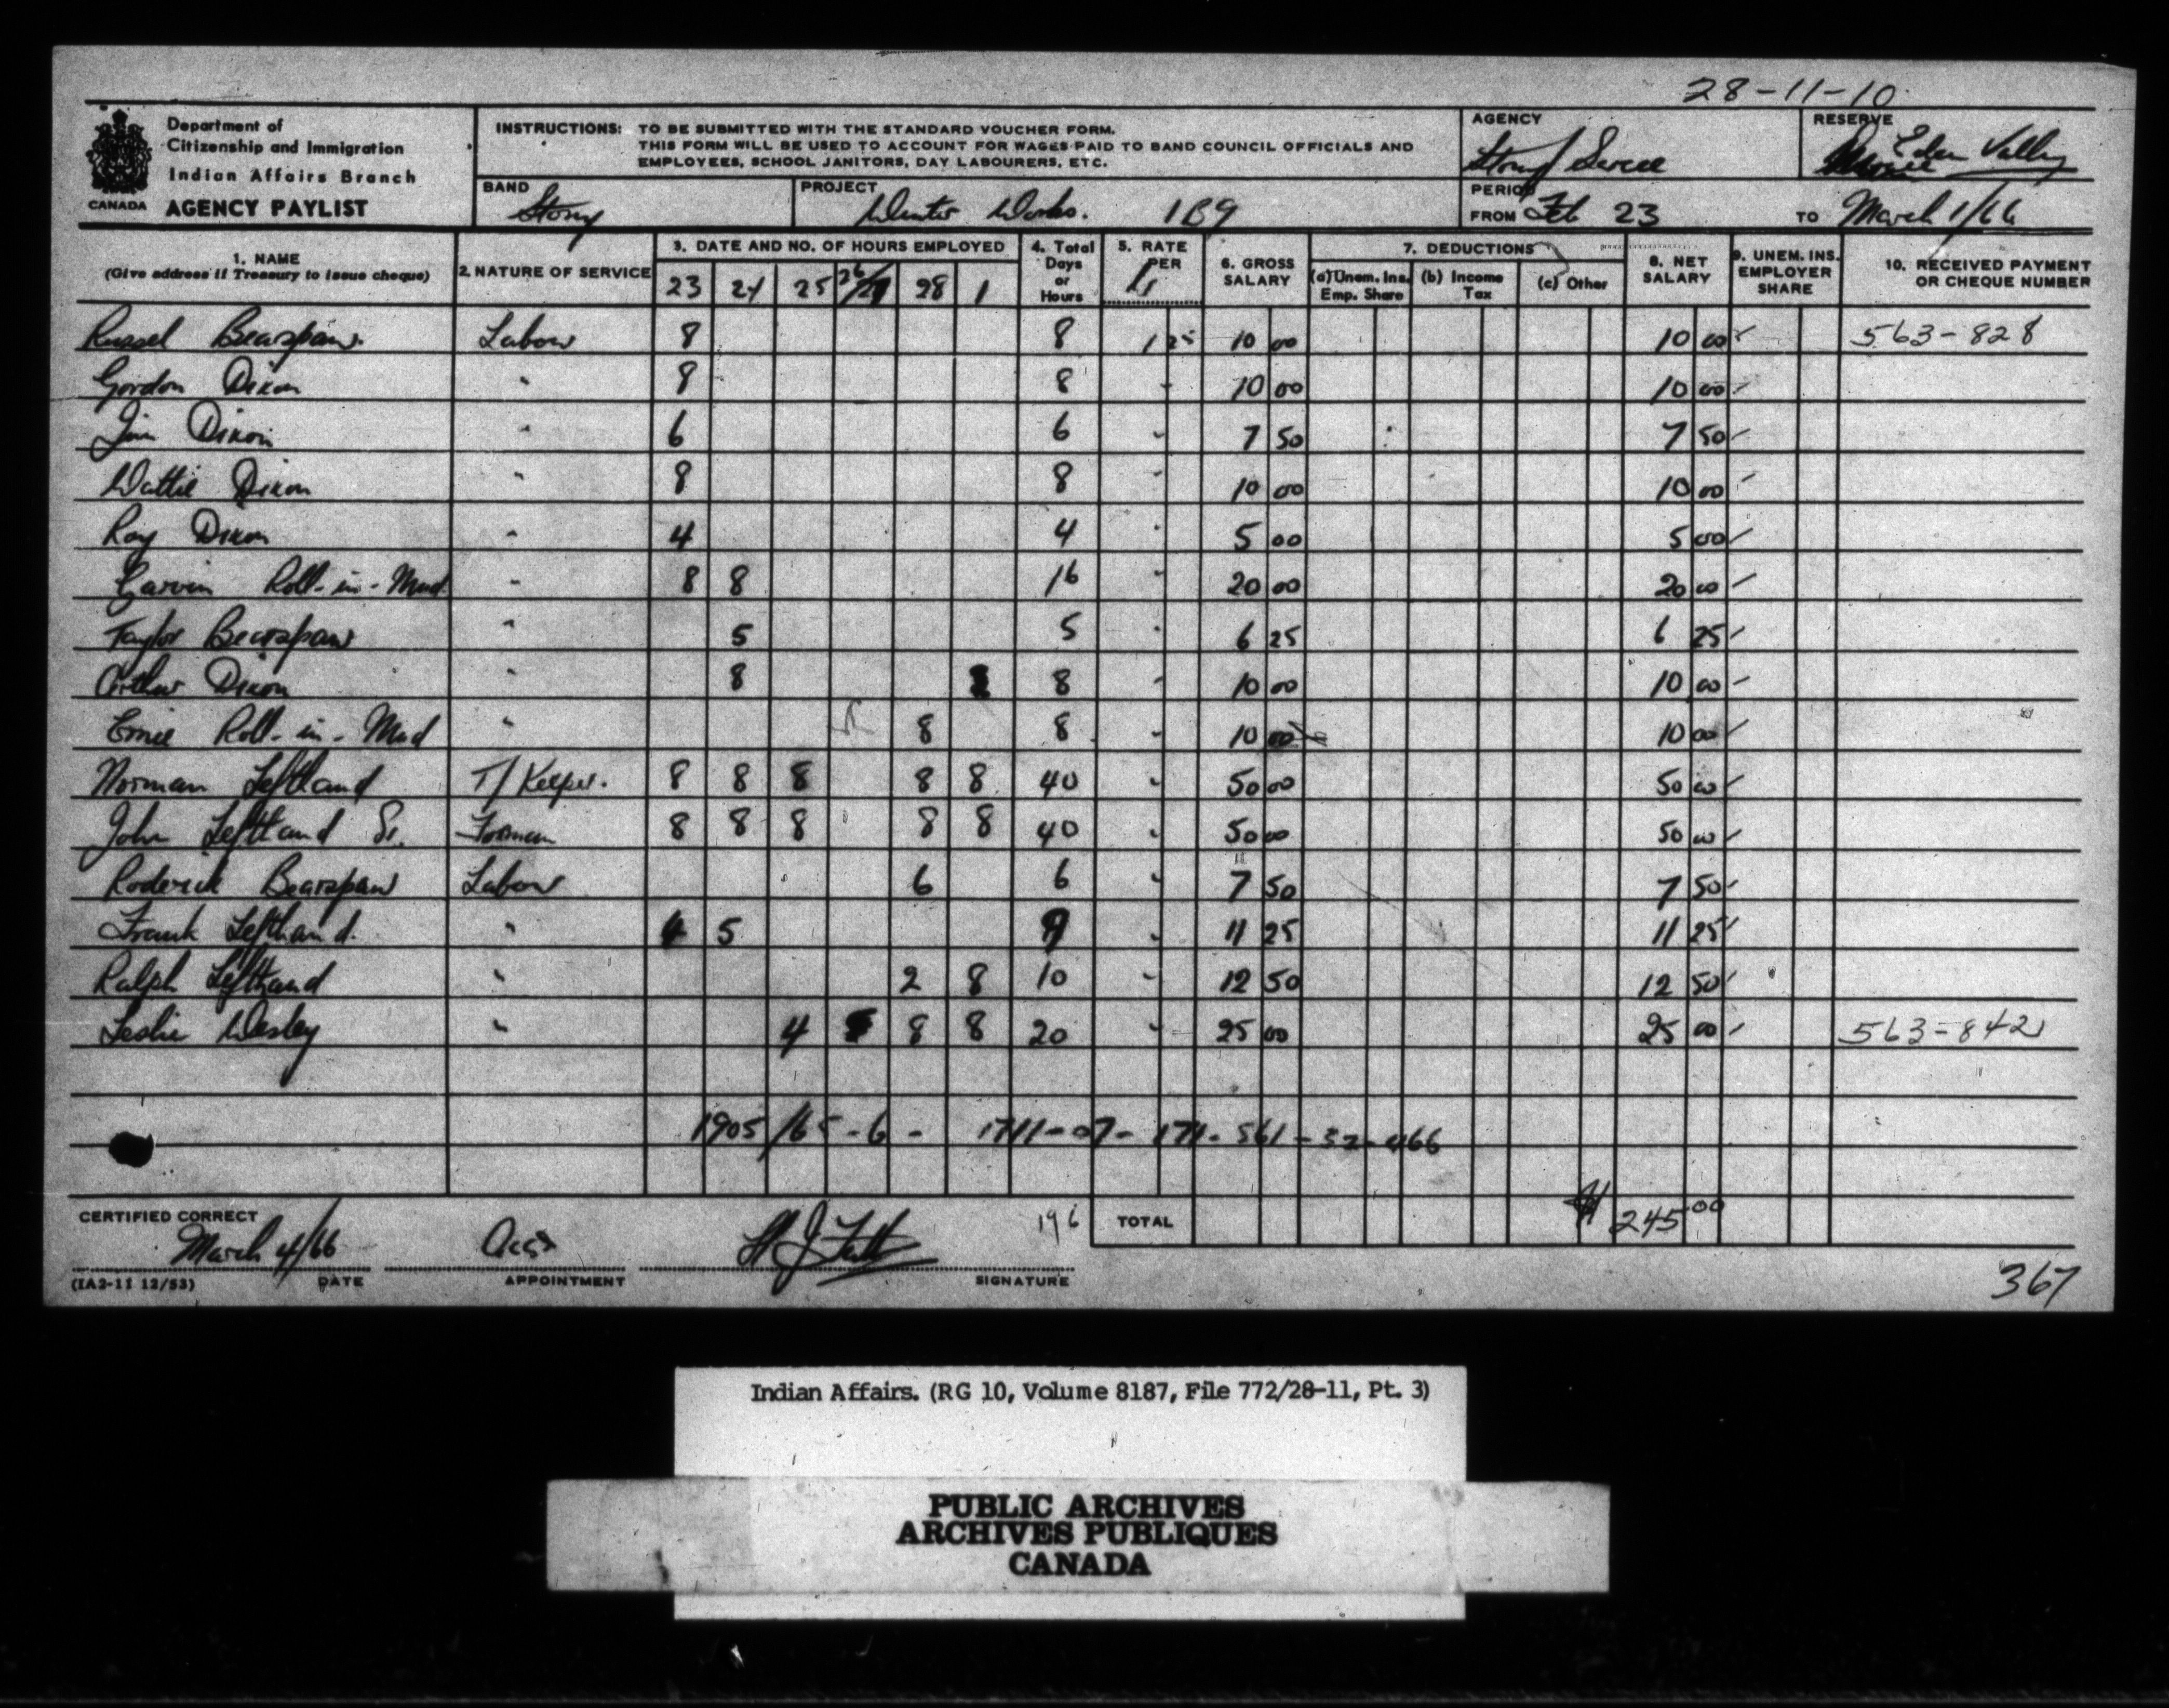 28-11-10
Department of
Citizenship and Immigration
Indian Affairs Branch
CANADA AGENCY PAYLIST
INSTRUCTIONS: TO BE SUBMITTED WITH THE STANDARD VOUCHER FORM.
THIS FORM WILL BE USED TO ACCOUNT FOR WAGES PAID TO BAND COUNCIL OFFICIALS AND
EMPLOYEES, SCHOOL JANITORS, DAY LABOURERS, ETC.
AGENCY Stony Sarcee
RESERVE Eden Valley
BAND Stony
PROJECT Winter Works. 1B9
PERIOD FROM Feb 23 TO March 1/66
1. NAME (Give address if Treasury to issue cheque) 2. NATURE OF SERVICE 3. DATE AND NO. OF HOURS EMPLOYED 4. Total Days or Hours 5. RATE PER 6. GROSS SALARY 7. DEDUCTIONS (a) Unem. Ins. Emp. Share (b) Income Tax (c) Other 8. NET SALARY 9. UNEM. INS. EMPLOYER SHARE 10. RECEIVED PAYMENT OR CHEQUE NUMBER
23 24 25 26/27 28 1
Russel Bearspaw. Labour 8 8 1 25 10 00 10 00 563-828
Gordon Dixon " 8 8 " 10 00 10 00
Jim Dixon " 6 6 " 7 50 7 50
Wattie Dixon " 8 8 " 10 00 10 00
Roy Dixon " 4 4 " 5 00 5 00
Garvin Roll-in-Mud " 8 8 16 " 20 00 20 00
Taylor Bearspaw " 5 5 " 6 25 6 25
Arthur Dixon " 8 8 " 10 00 10 00
Ernie Roll-in-Mud " 8 8 " 10 00 10 00
Norman Lefthand T/Keeper. 8 8 8 8 8 40 " 50 00 50 00
John Lefthand Sr. Forman 8 8 8 8 8 40 " 50 00 50 00
Roderick Bearspaw Labour 6 6 " 7 50 7 50
Frank Lefthand. " 4 5 9 " 11 25 11 25
Ralph Lefthand " 2 8 10 " 12 50 12 50
Leslie Wesley " 4 8 8 20 " 25 00 25 00 563-842
1905/65-6- 1711-07-171-561-32-466
CERTIFIED CORRECT
196 TOTAL $ 245 00
March 4/66
(IA2-11 12/53) DATE APPOINTMENT SIGNATURE
367
Indian Affairs. (RG 10, Volume 8187, File 772/28-11, Pt. 3)
PUBLIC ARCHIVES
ARCHIVES PUBLIQUES
CANADA